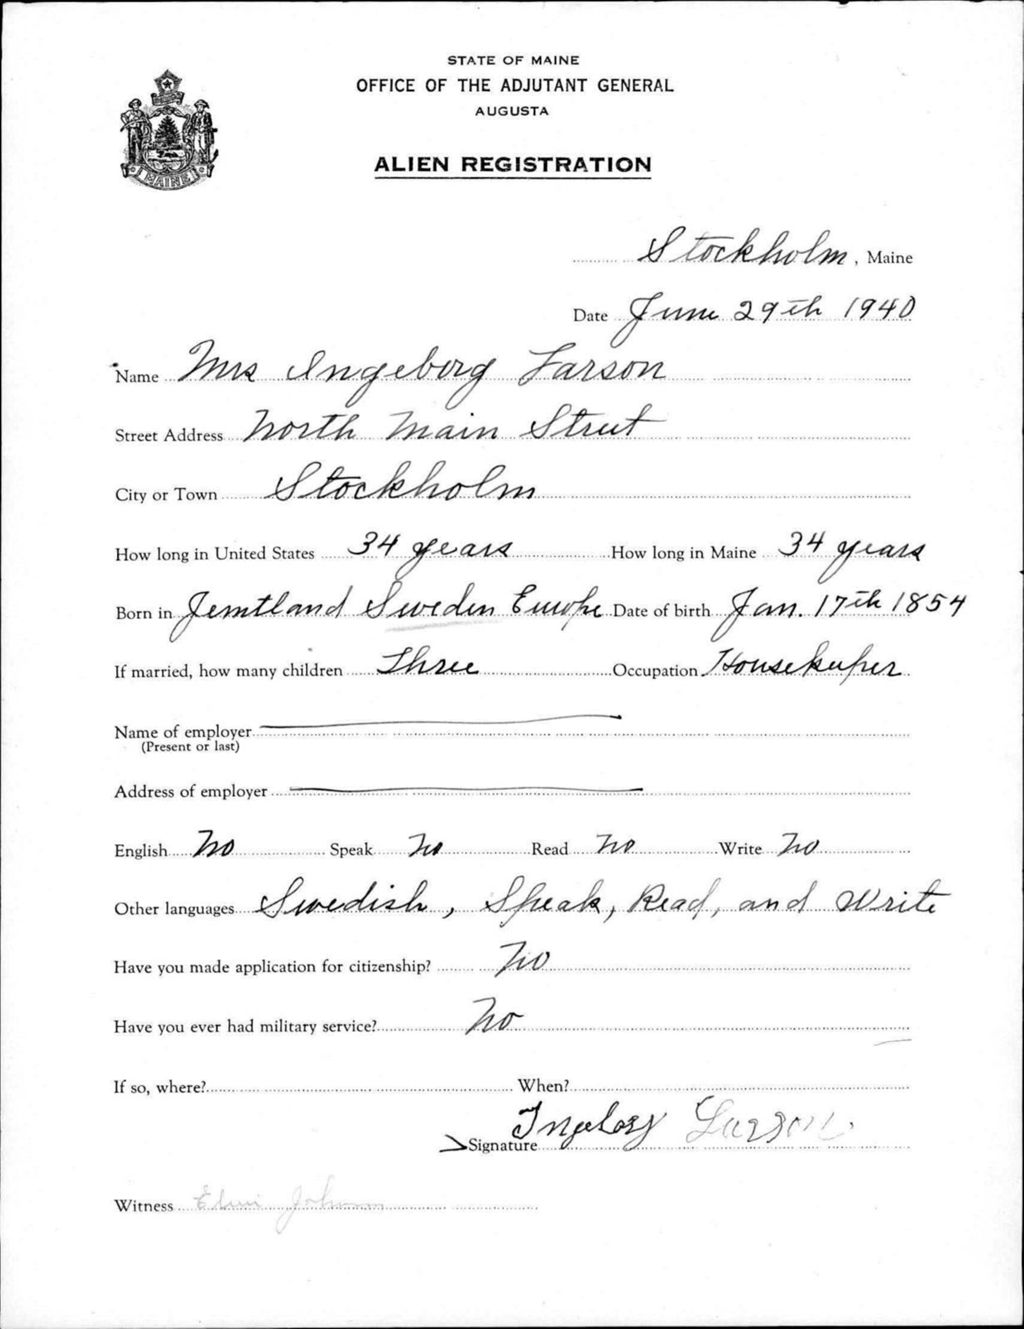 STATE OF MAINE
OFFICE OF THE ADJUTANT GENERAL
AUGUSTA
ALIEN REGISTRATION
MAINE
Stockholm, Maine
Date June 29th 1940
Name Mrs Ingeborg Larson
Street Address North Main Street
City or Town Stockholm
How long in United States 34 years How long in Maine 34 years
Born in Jemtland Sweden Europe Date of birth Jan. 17th 1854
If married, how many children Three Occupation Housekeeper
Name of employer
(Present or last)
Address of employer
English No Speak No Read No Write No
Other languages Swedish, Speak, Read, and Write
Have you made application for citizenship? No
Have you ever had military service? No
If so, where? When?
Signature Ingeborg Larson
Witness Johnson